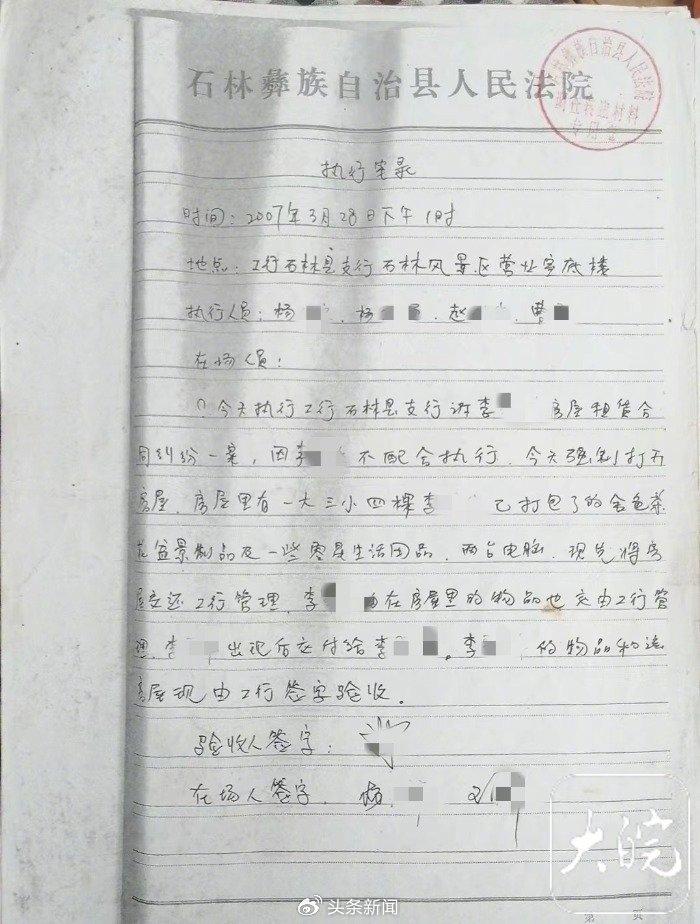 石林彝族自治县人民法院
自治县人民法院
材料
专用章
执行笔录
时间：2007年3月28日下午1时
地点：工行石林县支行石林风景区营业室底楼
执行人员：杨 、杨 、赵 、曹
在场人员：
？今天执行工行石林县支行诉李 房屋租赁合
同纠纷一案，因李 不配合执行，今天强制打开
房屋，房屋里有一大三小四棵李 已打包了的金色茶
花盆景制品及一些零星生活用品，两台电脑，现先将房
屋交还工行管理，李 在房屋里的物品也交由工行管
理，李 出现后交付给李 。李 的物品和该
房屋现由工行签字验收。
验收人签字：
在场人签字： 杨
大皖
头条新闻
第 页